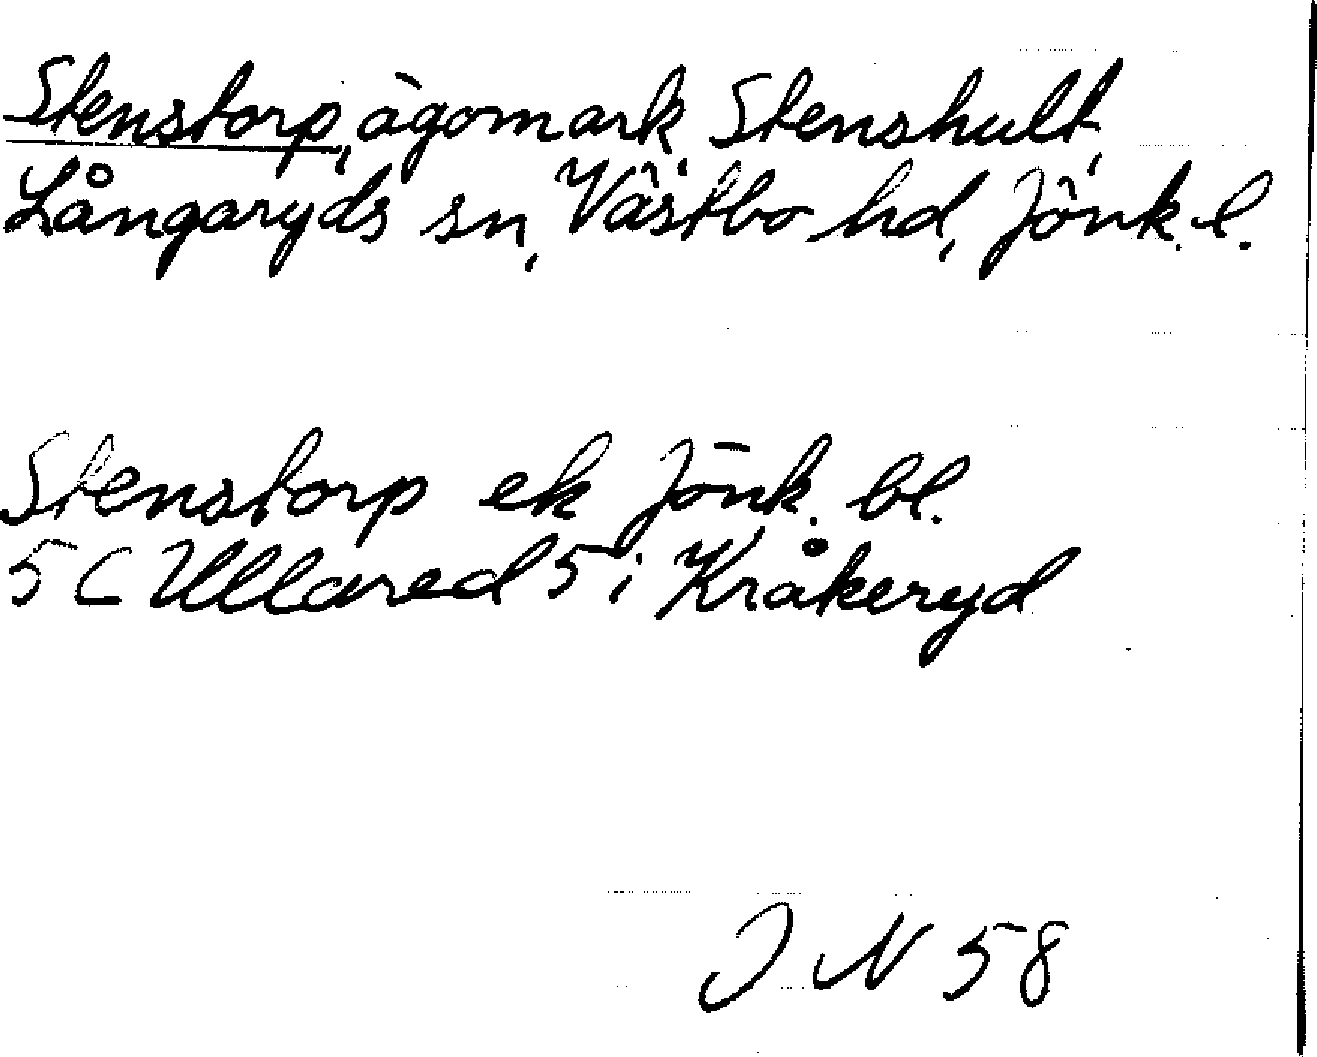 Stenstorp, ägomark Stenshult,
Långaryds sn, Västbo hd, Jönk. l.
Stenstorp ek Jönk. bl.
5 C Ullared 5 i Kråkeryd
J N 58